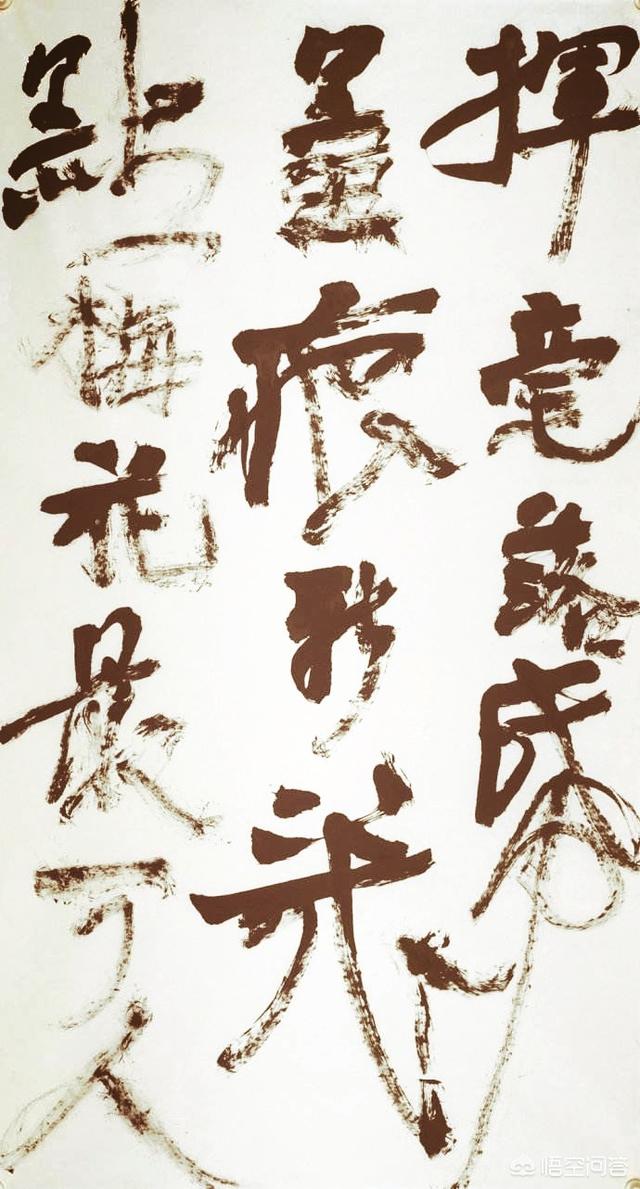 揮毫落帋
墨痕新幾
點梅花最可人
悟空问答